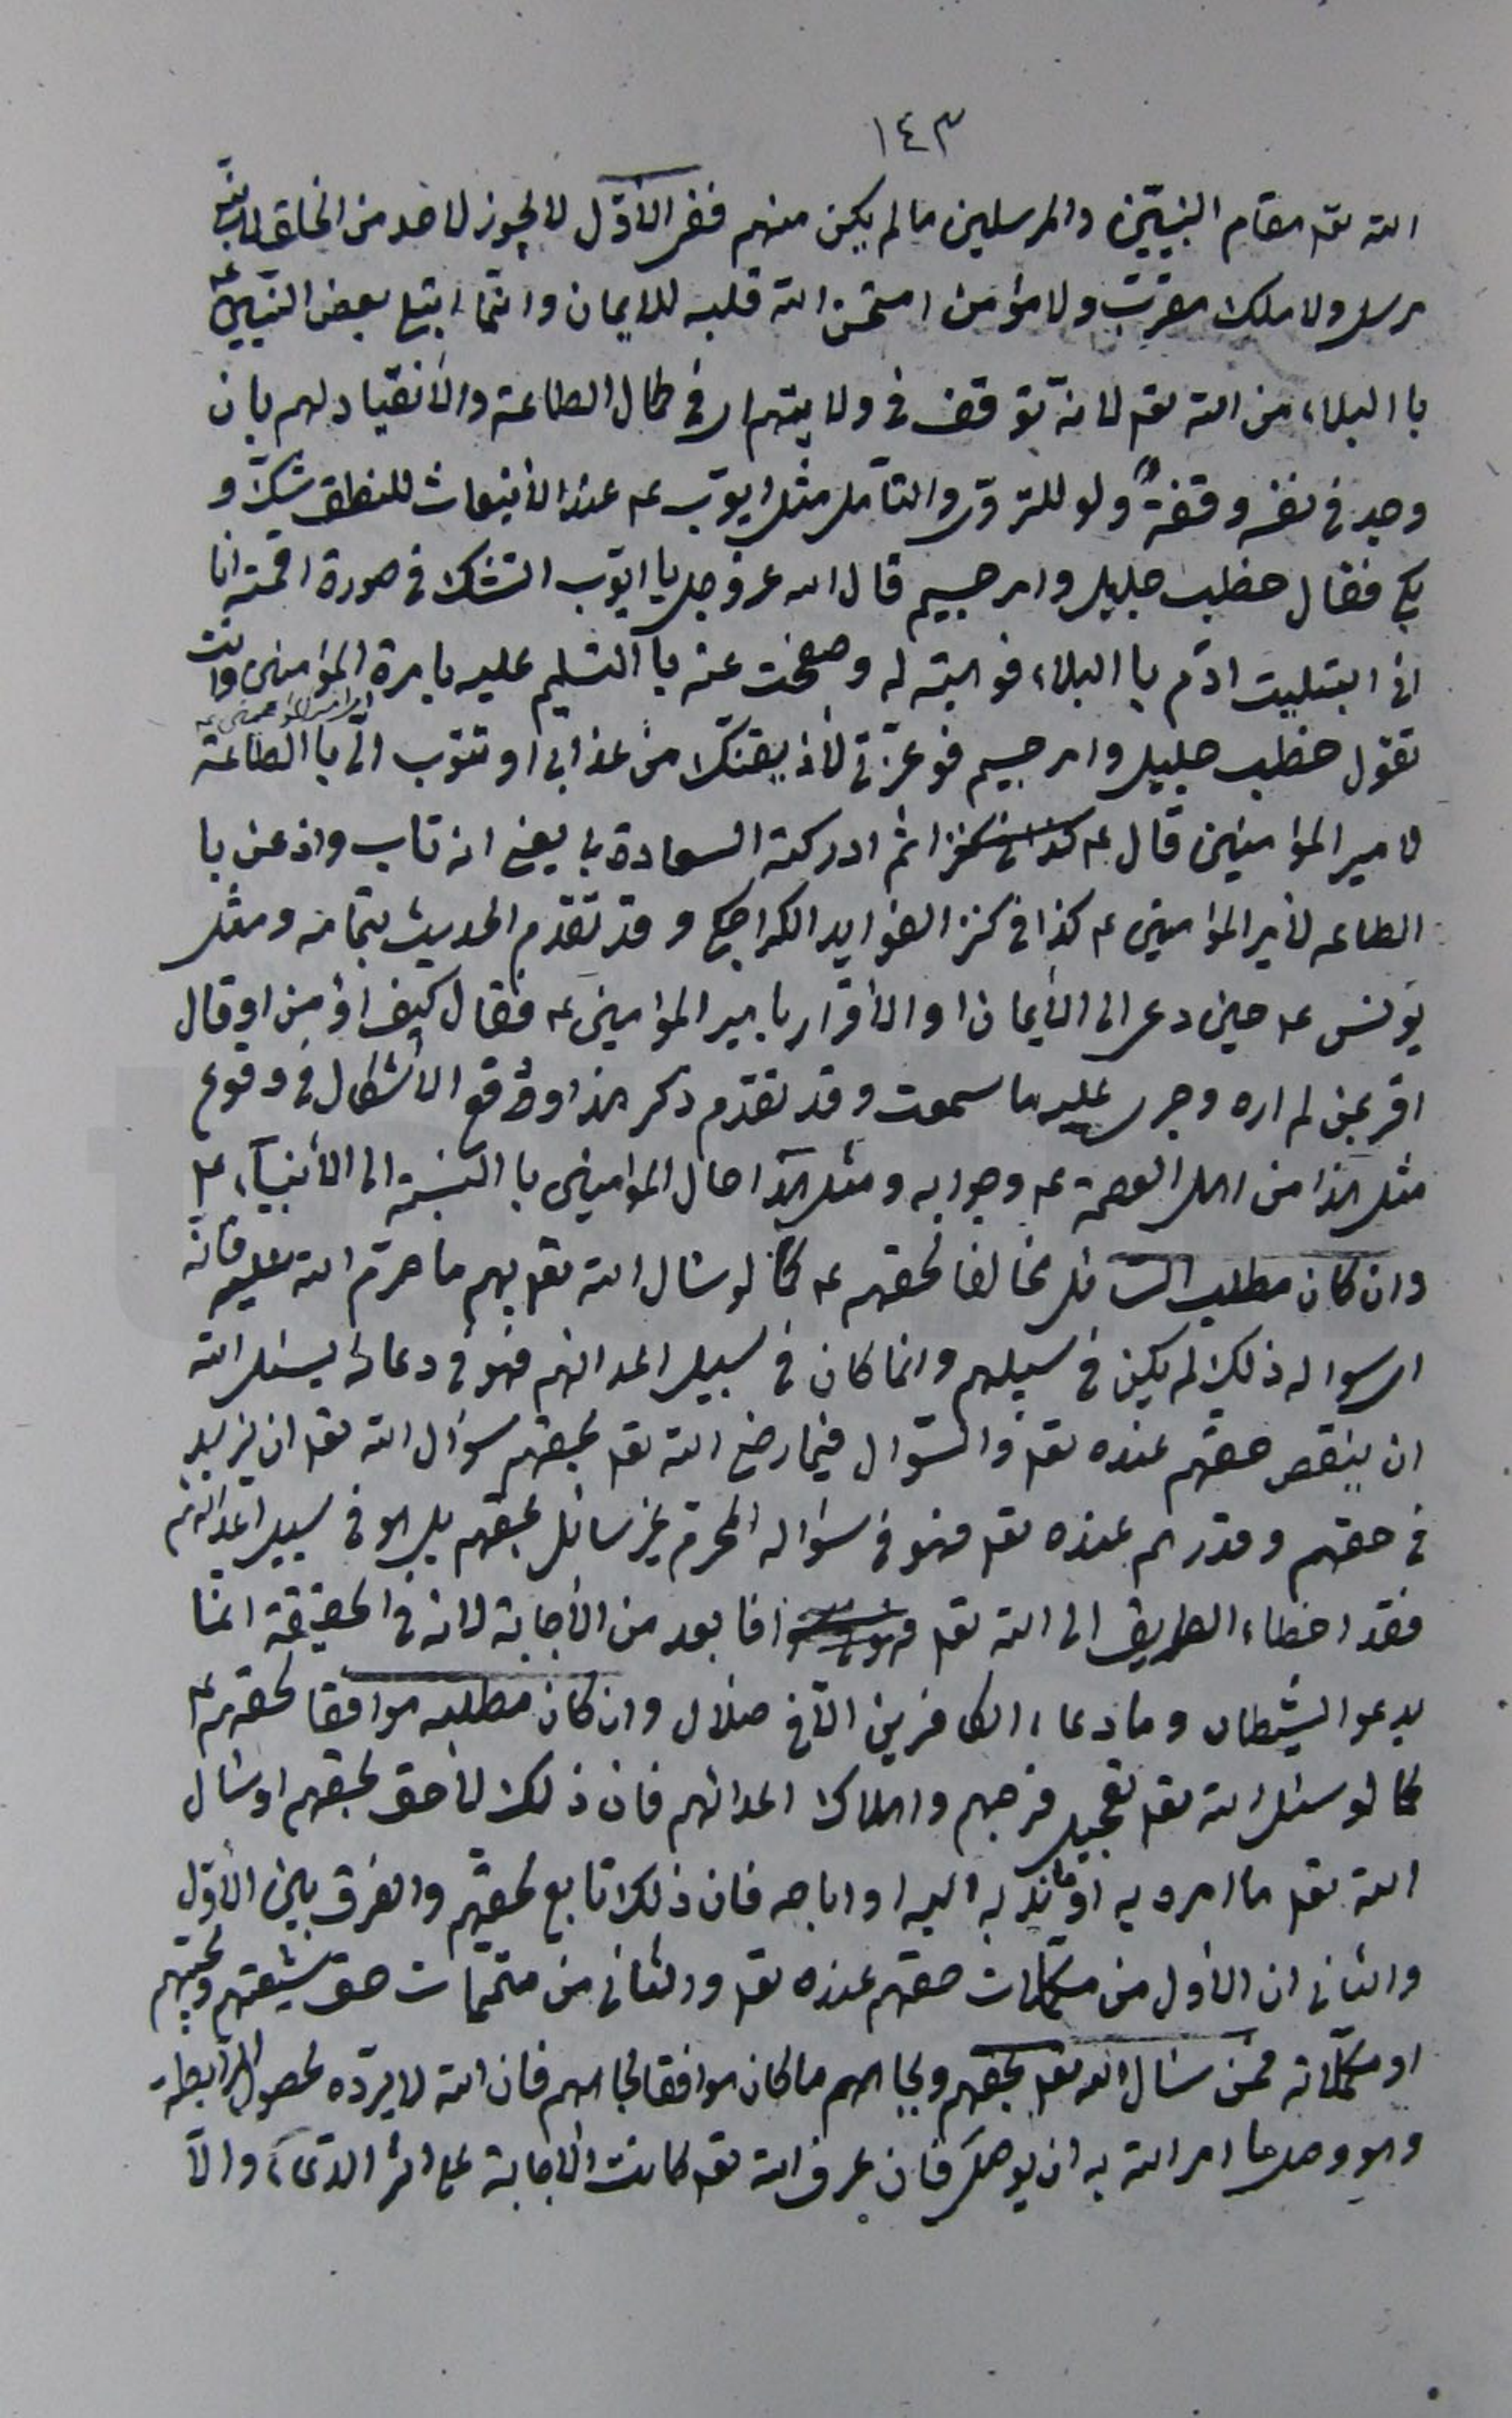 ١٤٣
الله تعه مقام النبيّين والمرسلين ما لم يكن منهم ففى الأوّل لا يجوز لاحد من الخلق لا نبى
مرسل ولا ملك مقرّب ولا مؤمن امتحن الله قلبه للايمان وانّما ابتلى بعض النبيّين عه
با البلاء من الله تعه لانه توقف فى ولايتهم اى فى كمال الطاعة والأنقياد لهم بان
وجد فى نفسه وقفةً ولو للتروّى والتأمل مثل ايوّب عه عند الأنبعاث للنطق شكّ و
بكى فقال خطب جليل وامر جسيم قال الله عزوجل يا ايوّب اتشك فى صورة اقمته انا
انى ابتليت ادٓم با البلاء فوهبته له وصفحت عنه با التسليم عليه بامرة المؤمنين وانت
تقول خطب جليل وامر جسيم فوعزّتى لأذيقنّك من عذابى او تتوب الىّ با الطاعة
امير المؤمنين عه
لامير المؤمنين قال عه ثم ادركته السعادة بى يعنى انه تاب واذعن با
الطاعه لأمير المؤمنين عه كذا فى كنز الفوايد الكراجكى وقد تقدم الحديث بتمامه ومثل
يونس عه حين دعى الى الأيمان او الأقرار بامير المؤمنين عه فقال كيف اؤمن او قال
اقر بمن لم اره وجرى عليه ما سمعت وقد تقدّم ذكر هذا ورفع الأشكال فى وقوع
مثل هذا من اهل العصمة عه وجوابه ومثل هذا حال المؤامنين با النسبة الى الأنبيآء عه
وان كان مطلب السائل مخالفا لحقهم عه كما لو سئال الله تعه بهم ما حرّم الله عليه فانّه
اى سواله ذلك لم يكن فى سبيلهم وانما كان فى سبيل اعدائهم فهو فى دعائه يسئل الله
ان ينقص حقهم عنده تعه والسّوال فيما رضى الله تعه بحقهم سؤال الله تعه ان يزيد
فى حقهم وقدرهم عنده تعه فهو فى سؤاله المحرم غير سائل بحقهم بل هو فى سبيل اعدائهم
فقد اخطاء الطريق الى الله تعه فا بعد من الأجابة لانه فى الحقيقة انمّا
يدعو الشيطان وما دعاء الكافرين الاّ فى ضلال وان كان مطلبه موافقا لحقهم عه
كما لو سئل الله تعه تعجيل فرجهم واهلاك اعدائهم فان ذلك لأحق بحقهم او سئال
الله تعه ما امره به او ما ندبه اليه او اباحه فان ذلك تابع لحقهم والفرق بين الأوّل
والثانى ان الأول من مكمّلات حقهم عنده تعه والثانى من متممّات حق شيعتهم ومحبّيهم
او مكمّلاته فمن سئال الله تعه بحقهم وبجاههم ما كان موافقا لجاههم فان الله لا يردّه لحصول الرابطة
وهو وصل ما امر الله به ان يوصل فان عرف الله تعه كانت الأجابة على اثر الدعاء والاّ